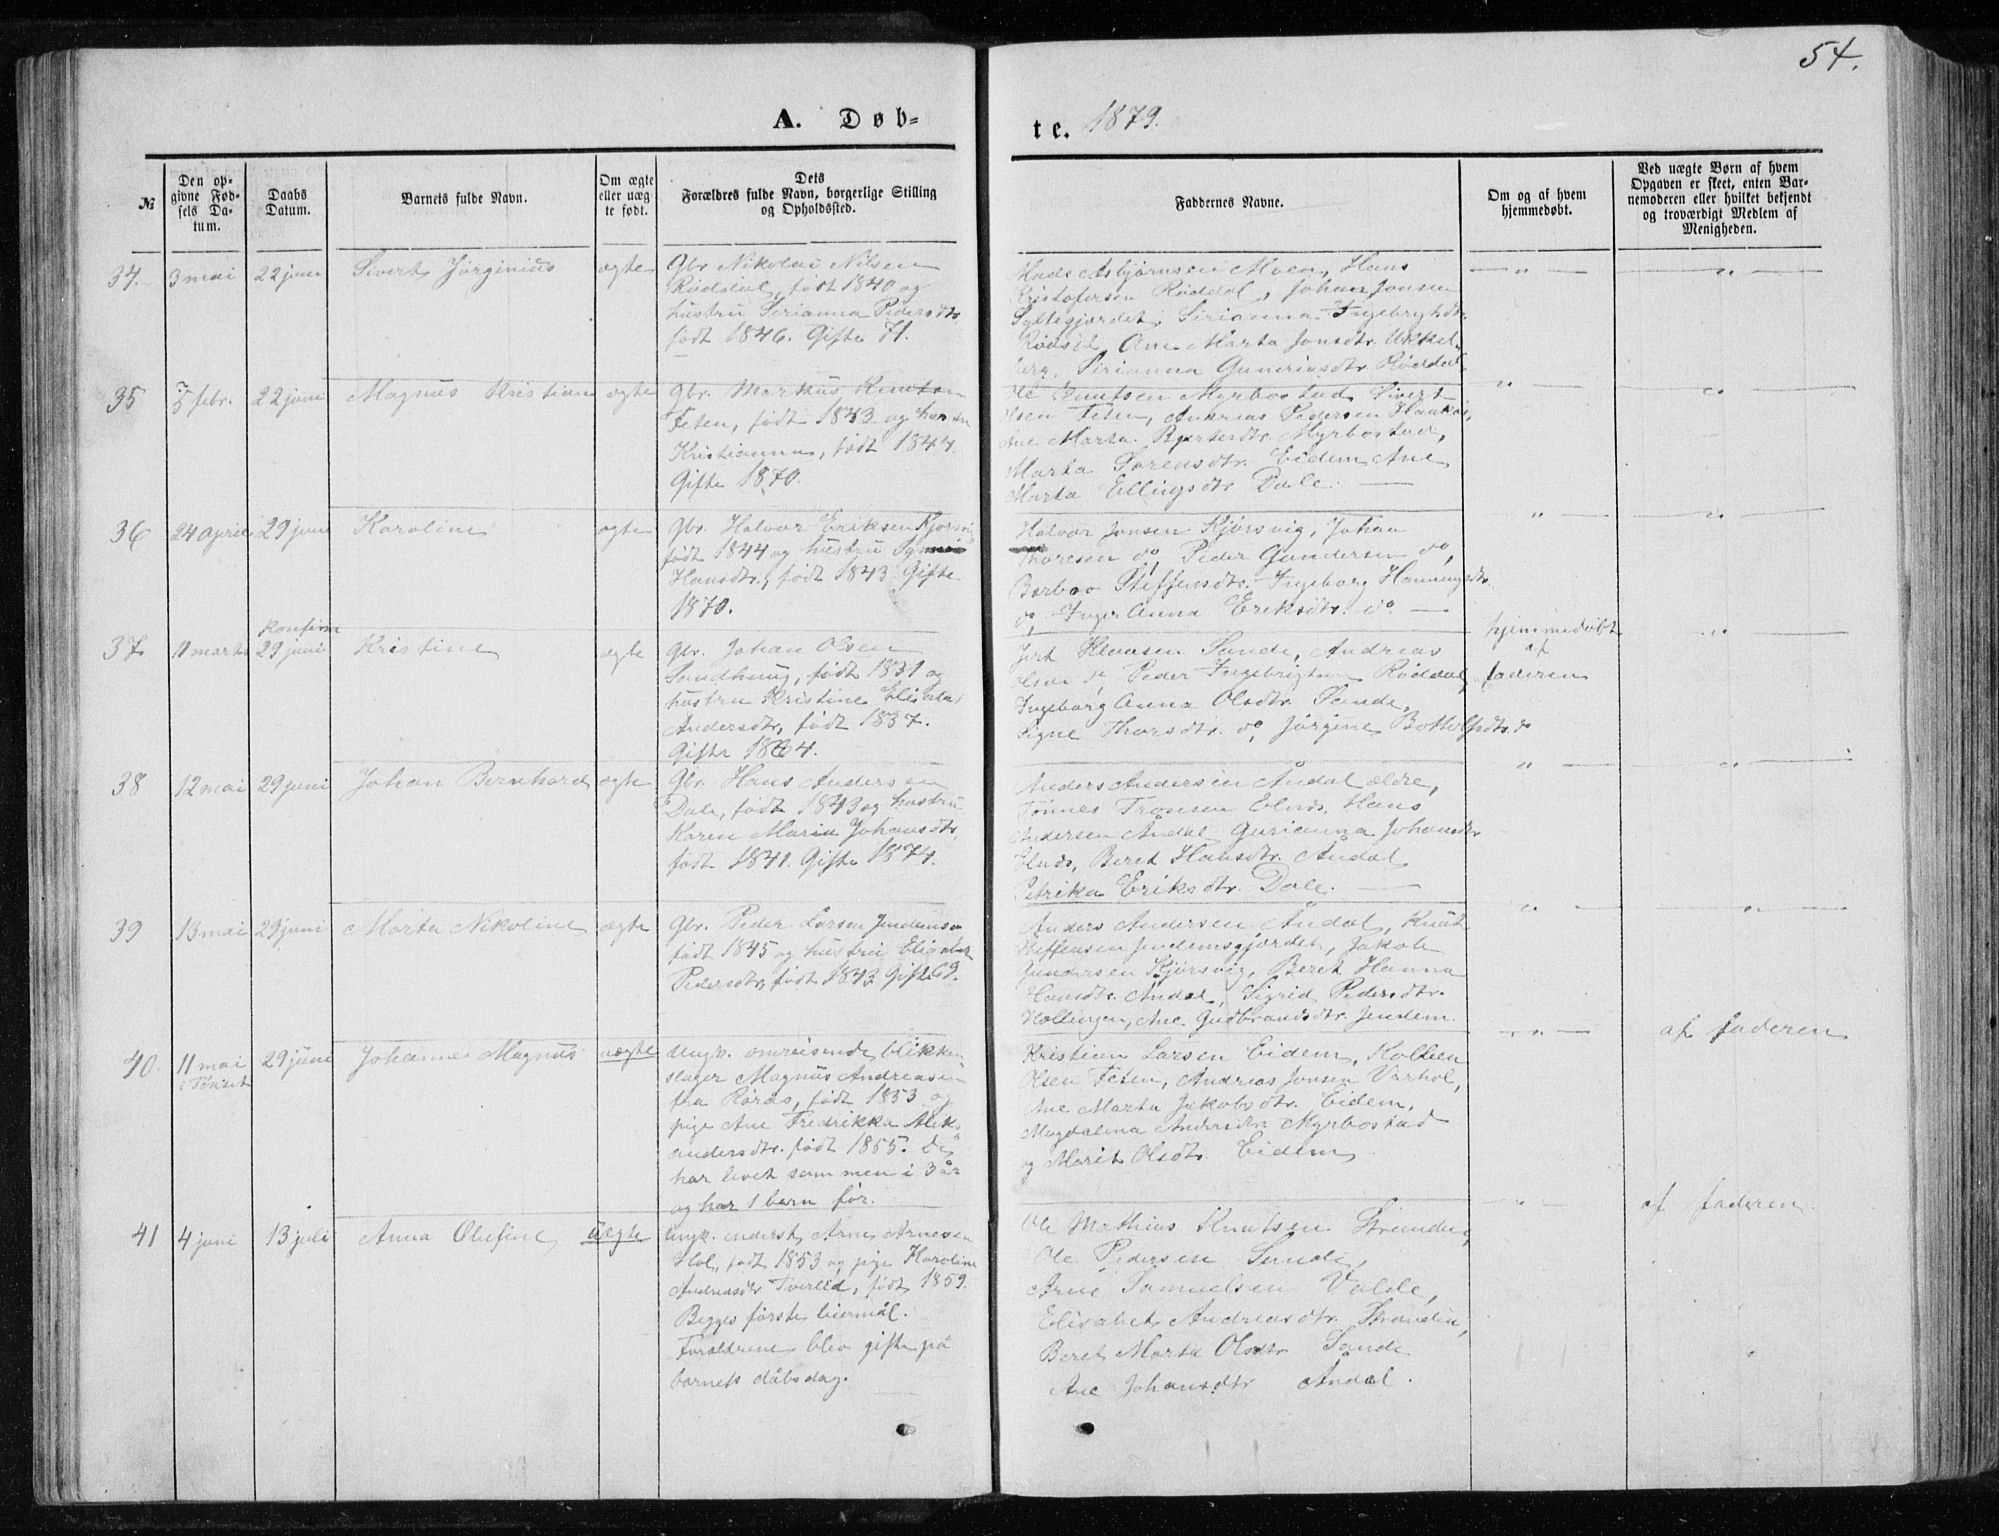 54.
A. Døb-
te. 1879.
№
Den op-
givne Fød-
sels Da-
tum.
Daabs
Datum.
Barnets fulde Navn.
Om ægte
eller uæg-
te født.
Dets
Forældres fulde Navn, borgerlige Stilling
og Opholdssted.
Faddernes Navne.
Om og af hvem
hjemmedøbt.
Ved uægte Børn af hvem
Opgaven er skeet, enten Bar-
nemoderen eller hvilket bekjendt
og troværdigt Medlem af
Menigheden.
34. 3 mai 22 juni Sivert Jørginius ægte
Gbr Nikolai Nilsen
Røddal, født 1840 og
hustru Sirianna Pedersdtr
født 1846. Gifte 71.
Mads Asbjørnsen Moen, Hans
Kristofersen Røddal, Johan Jonsen
Syltegjærdet, Sirianna Ingebrigtsdtr
Rødal, Ane Marta Jonsdtr. Ukkel-
berg, Sirianna Guneriusdtr. Røddal
35 febr. 22 juni Magnus Kristian ægte
Gbr. Markus Knutsen
Feten, født 1843 og hustru
Kristianna, født 1844.
Gifte 1870.
Ole Knutsen Myrbostad, Sivert
Olsen Feten, Andreas Pedersen
Ane Marta Myrbostad,
Marta Sørensdtr. Eidem, Ane
Marta Ellingsdtr Dale.
36 24 april 29 juni Karoline ægte
Gbr. Halvor Eriksen Kjørsvig
født 1844 og hustru
Hansdtr., født 1843. Gifte
1870.
Halvor Jonsen Kjørsvig, Johan
Thoresen do, Peder Gundersen do,
Barbro Steffensdtr. Ingeborg Hanningsdtr.
do, Inger Anna Eriksdtr. do.
37 11 marts
29 juni Kristine ægte
Gbr. Johan Olsen
Sandhaug, født 1831 og
hustru Kristine
Andersdtr, født 1837.
Gifte 1864.
Sande, Andreas
Olsen do, Peder Ingebrigtsen Røddal,
Ingeborg Anna Olsdtr. Sande,
Signe Thorsdtr. do, Jørgine Bottolfsdtr. do
hjemmedøbt
af
faderen
38 12 mai 29 juni Johan Bernhard ægte
Gbr. Hans Andersen
Dale, født 1843 og hustru
Karen Maria Johansdtr,
født 1841. Gifte 1874.
Anders Andersen Åndal ældre,
Tønnes Tronsen Elnæs, Hans
Andersen Åndal, Gurianna Johansdtr
Elnæs, Beret Hansdtr. Åndal
Petrika Eriksdtr. Dale.
39 13 mai 29 juni Marta Nikoline ægte
Gbr. Peder Larsen Jendems
født 1845 og hustru Elisabet
Pedersdtr, født 1843. Gifte 69.
Anders Andersen Åndal, Knut
Steffensen Jendemsgjærdet, Jakob
Gundersen Kjørsvig, Beret Hanna
Hansdtr. Åndal, Sigrid Pedersdtr.
Hollingen, Ane Gudbrandsdtr. Jendem.
40. 11 mai 29 juni Johannes Magnus uægte
Ungk. omreisende blikken
slager Magnus Andreasen
fra Røros, født 1853 og
pige Ane Fredrikka Aleks
andersdtr. født 1855. De
har levet sammen i 3 år
og har 1 barn før.
Kristian Larsen Eidem, Kolben
Olsen Feten, Andreas Jonsen Varhol,
Ane Marta Jakobsdtr. Eidem,
Magdalena Andersdtr. Myrbostad
og Marit Olsdtr. Eidem,
af faderen
41 4 juni 13 juli Anna Olufine uægte
Ungk. inderst Arne Arnesen
Hol, født 1853 og pige Karoline
Andreasdtr Tverlid, født 1859.
Begges første leiermål.
Forældrene blev gifte på
barnets dåbsdag.
Ole Mathias Knutsen Stranden,
Ole Pedersen Sunde,
Arne Samuelsen Valde,
Elisabet Andreasdtr. Stranden,
Beret Marta Olsdtr Sande
Ane Johansdtr Åndal.
af faderen